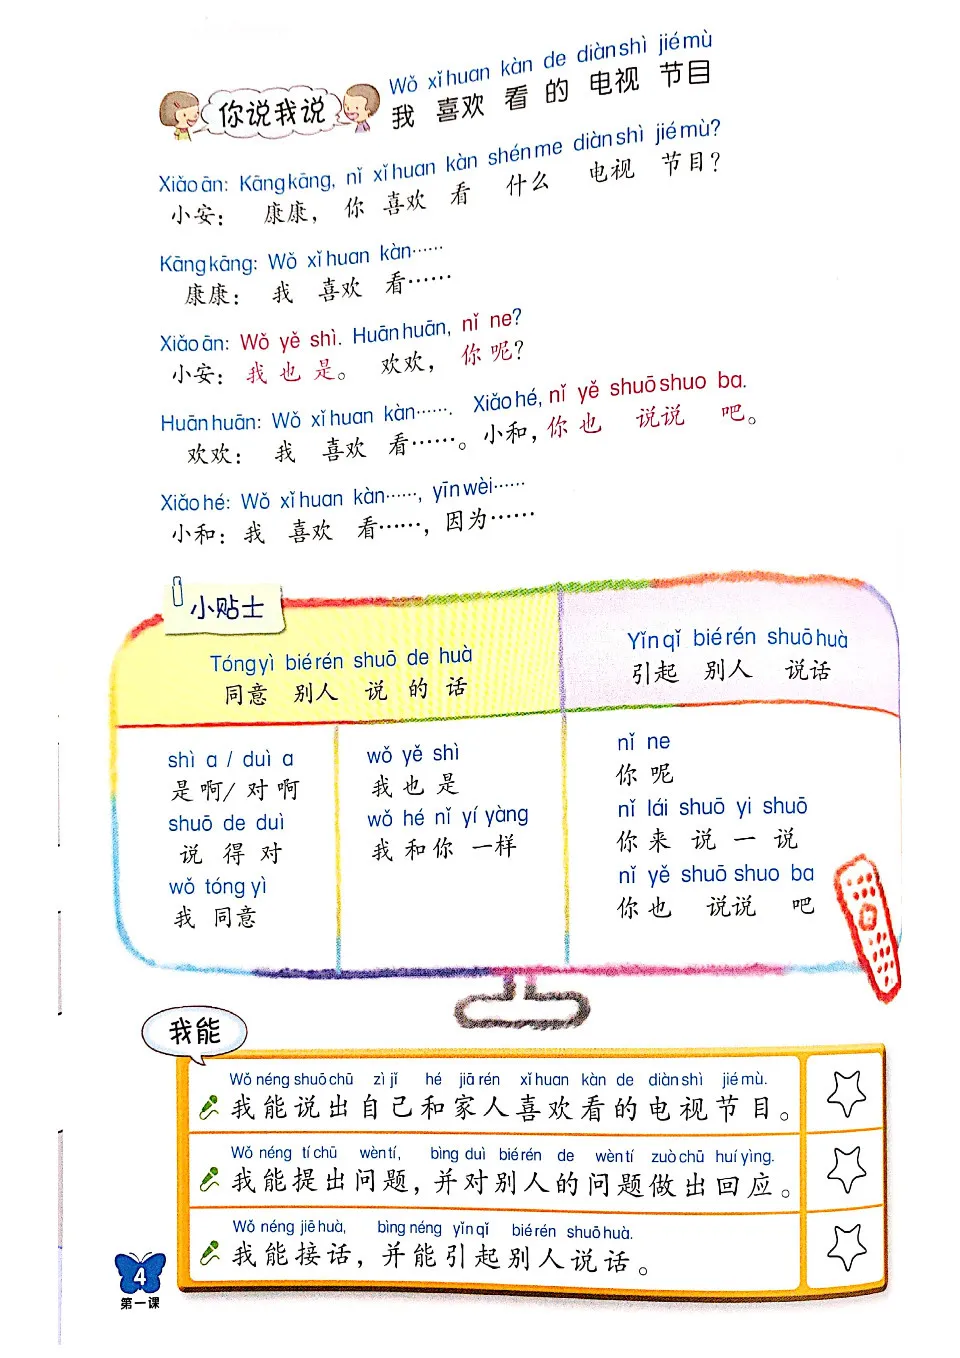 你说我说
Wǒ xǐhuan kàn de diànshì jiémù
我 喜欢 看 的 电视 节目
Xiǎo'ān: Kāngkāng, nǐ xǐhuan kàn shénme diànshì jiémù?
小安： 康康， 你 喜欢 看 什么 电视 节目？
Kāngkāng: Wǒ xǐhuan kàn……
康康： 我 喜欢 看……
Xiǎo'ān: Wǒ yě shì. Huānhuān, nǐ ne?
小安： 我 也 是。 欢欢， 你 呢？
Huānhuān: Wǒ xǐhuan kàn……. Xiǎohé, nǐ yě shuōshuo ba.
欢欢： 我 喜欢 看……。小和，你 也 说说 吧。
Xiǎohé: Wǒ xǐhuan kàn……, yīnwèi……
小和：我 喜欢 看……，因为……
小贴士
Tóngyì biérén shuō de huà
同意 别人 说 的 话
Yǐnqǐ biérén shuōhuà
引起 别人 说话
shì a / duì a
是啊/ 对啊
shuō de duì
说 得 对
wǒ tóngyì
我 同意
wǒ yě shì
我 也 是
wǒ hé nǐ yíyàng
我 和你 一样
nǐ ne
你 呢
nǐ lái shuō yi shuō
你 来 说 一 说
nǐ yě shuōshuo ba
你 也 说说 吧
我能
Wǒ néng shuōchū zìjǐ hé jiārén xǐhuan kàn de diànshì jiémù.
我能说出自己和家人喜欢看的电视节目。
Wǒ néng tíchū wèntí, bìng duì biérén de wèntí zuòchū huíyìng.
我能提出问题，并对别人的问题做出回应。
Wǒ néng jiēhuà, bìng néng yǐnqǐ biérén shuōhuà.
我能接话，并能引起别人说话。
4
第一课